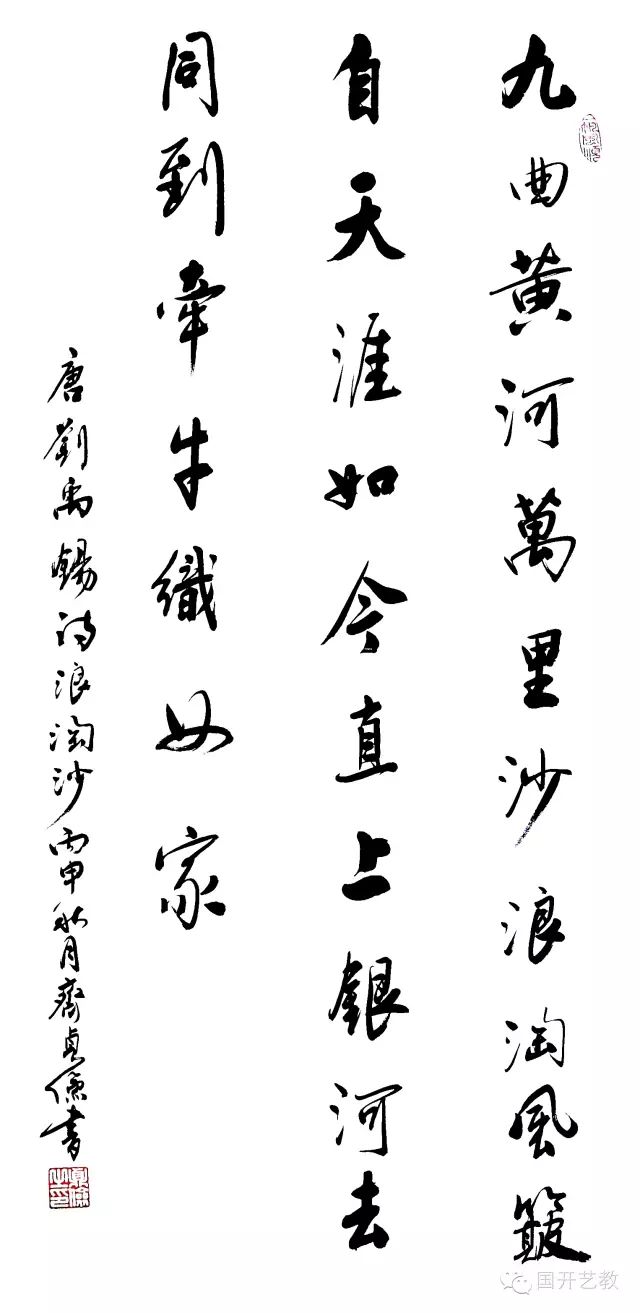 九曲黄河萬里沙浪淘風簸
自天涯如今直上銀河去
同到牽牛織女家
唐劉禹錫詩浪淘沙丙申秋月齊貞儉書
貞儉之印
国开艺教